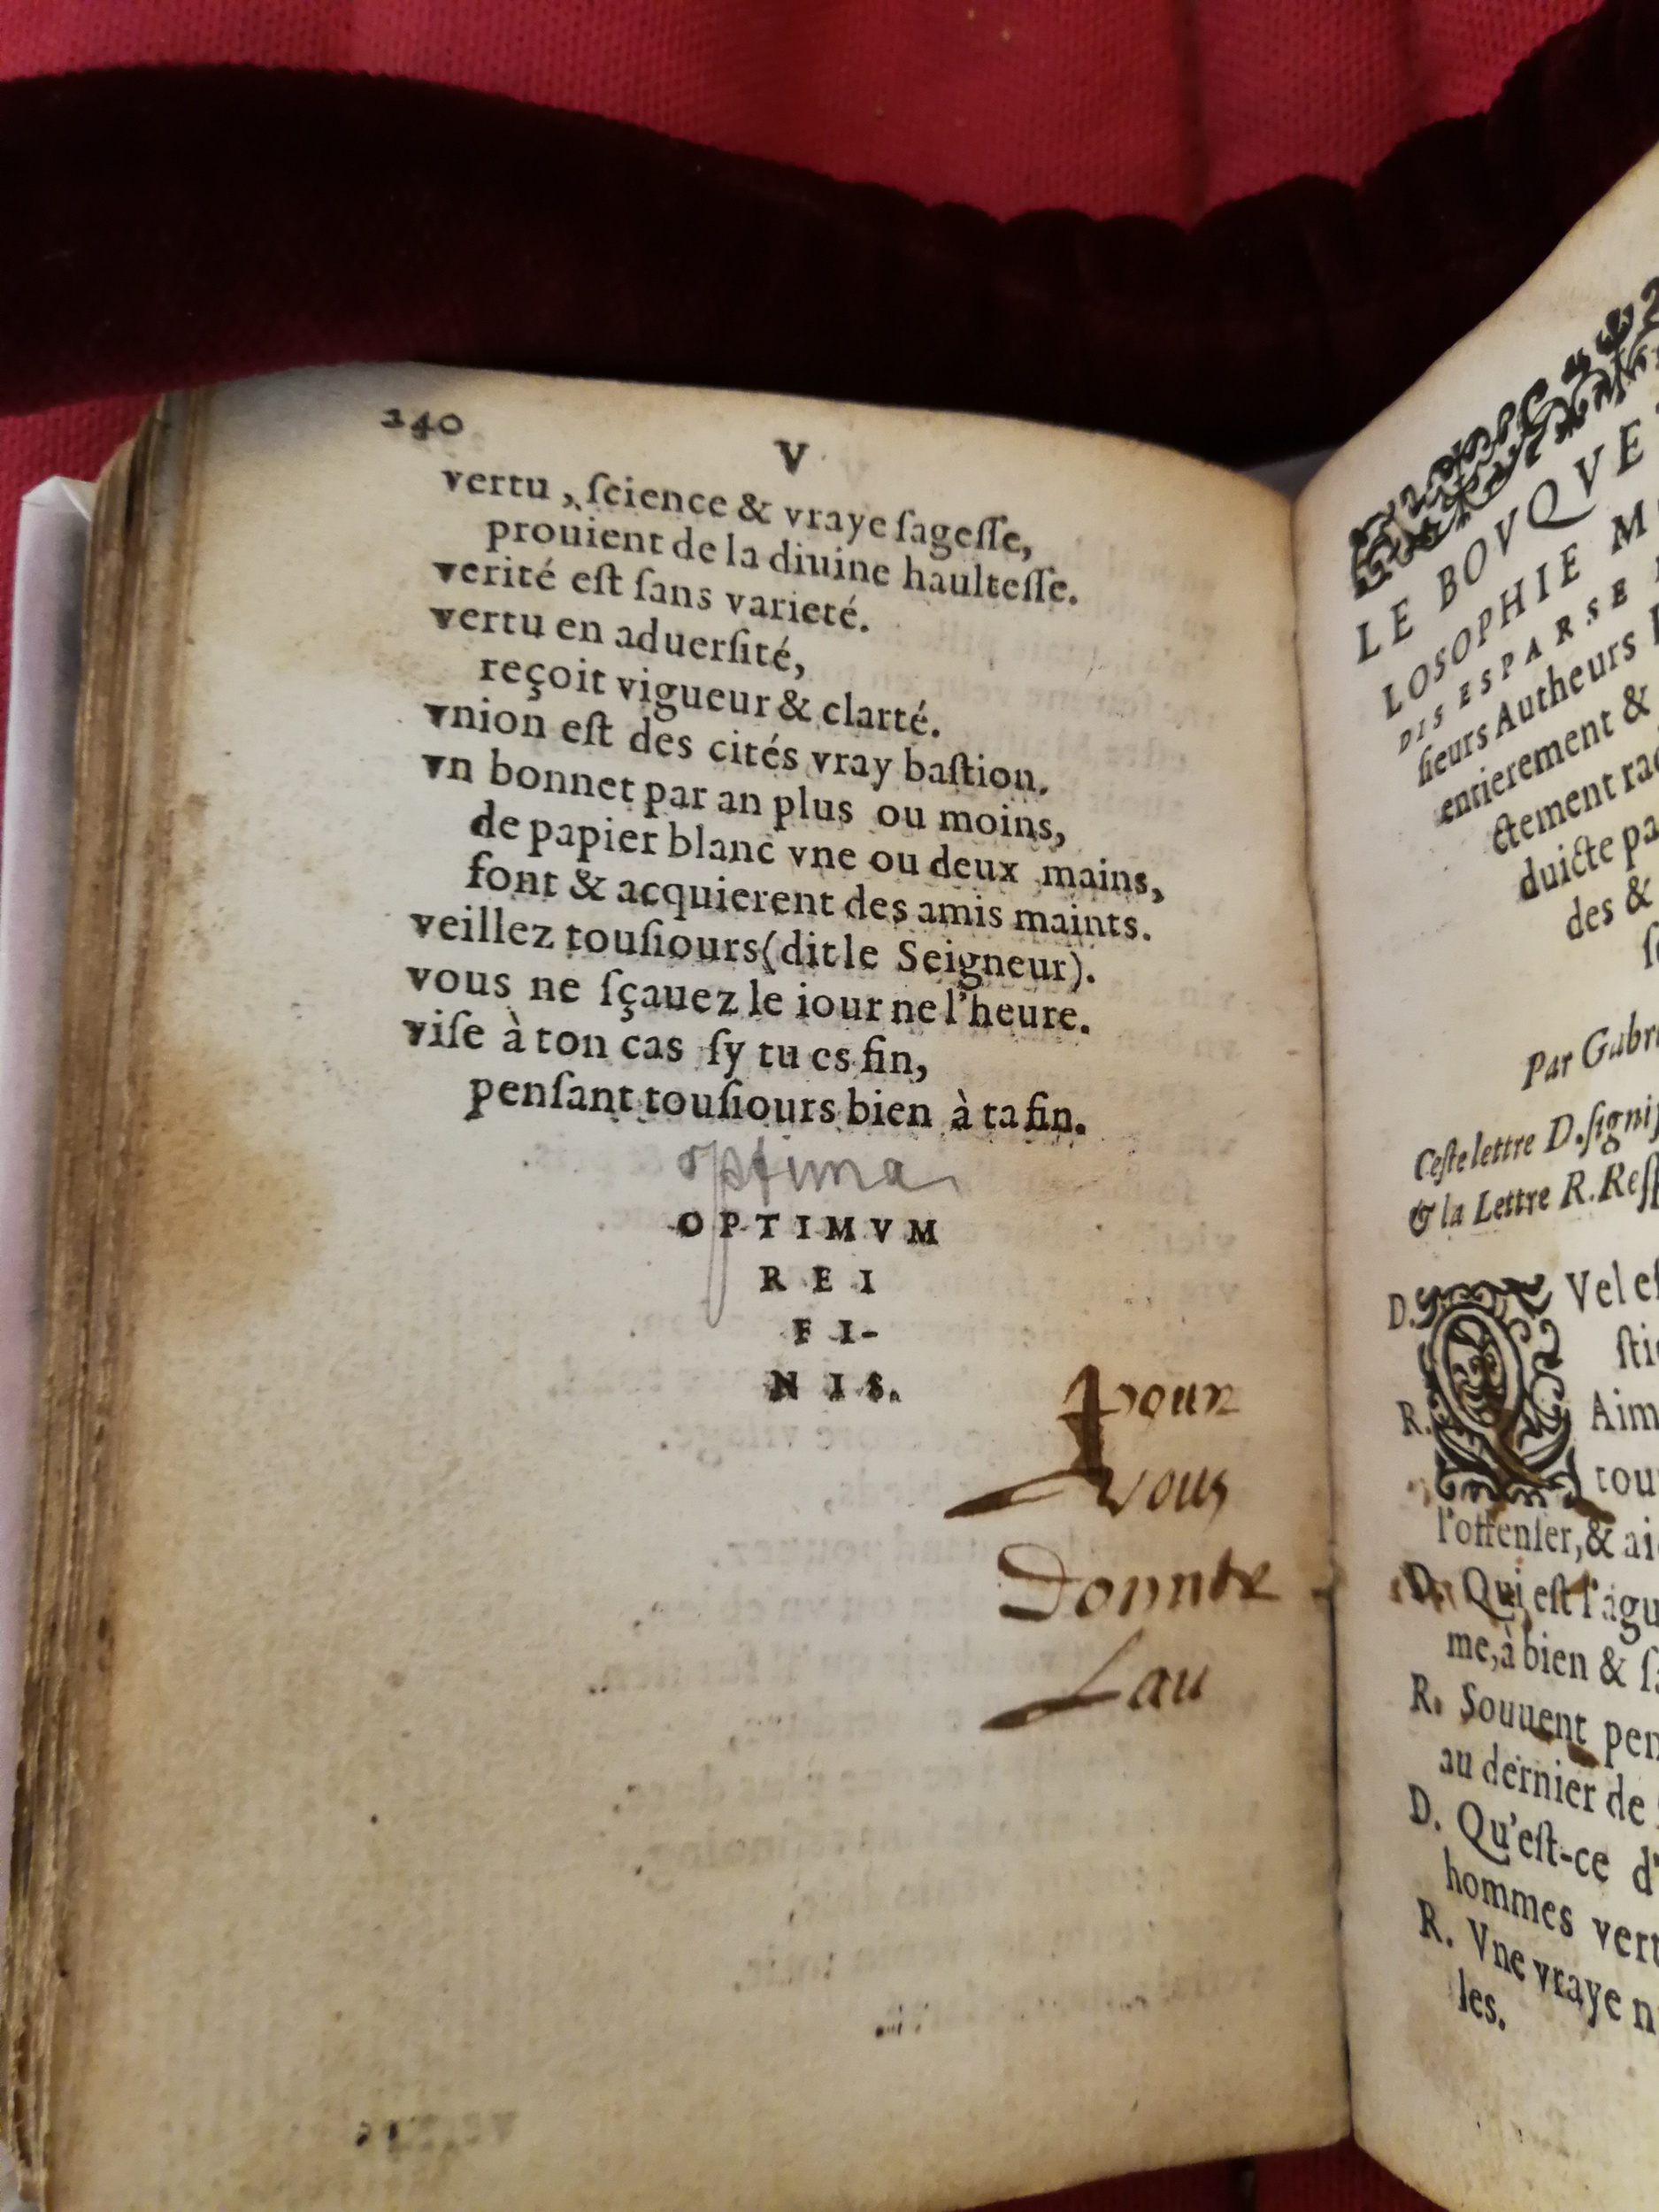 240
V
vertu, ſcience & vraye ſageſſe,
prouient de la diuine haulteſſe.
verité eſt ſans varieté.
vertu en aduerſité,
reçoit vigueur & clarté.
vnion eſt des cités vray baſtion.
vn bonnet par an plus ou moins,
de papier blanc vne ou deux mains,
font & acquierent des amis maints.
veillez touſiours (dit le Seigneur).
vous ne ſçauez le iour ne l'heure.
viſe à ton cas ſy tu es fin,
penſant touſiours bien à ta fin.
optima
OPTIMVM
REI
FI-
NIS.
pour
vous
Donner
Lau
LE BOVQVE
LOSOPHIE M
DISESPARSE
ſieurs Autheurs
entierement &
ctement
duicte
des &
Par
Ceſte lettre D.
& la Lettre R.
D. QVel
R. Aim
tou
l'offenſer, &
D. Qui eſt l'
me, à bien &
R. Souuent
au dernier de
D. Qu'eſt-ce
hommes
R. Vne vraye
les.